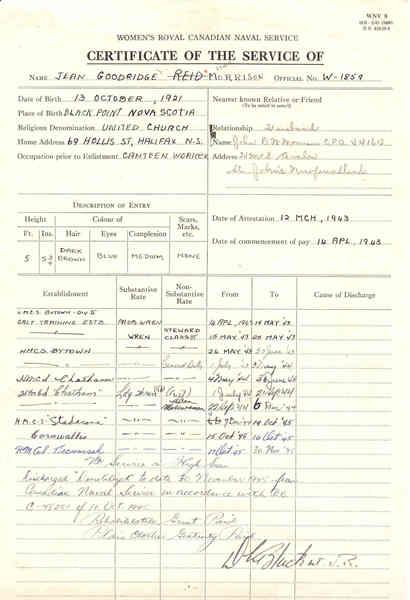 WNV 8
WOMEN'S ROYAL CANADIAN NAVAL SERVICE
CERTIFICATE OF THE SERVICE OF
NAME JEAN GOODRIDGE REID MORRISON OFFICIAL NO. W-1859
Date of Birth 13 OCTOBER, 1921
Place of Birth BLACK POINT NOVA SCOTIA
Religious Denomination UNITED CHURCH
Home Address 69 HOLLIS ST, HALIFAX N.S.
Occupation prior to Enlistment CANTEEN WORKER
Nearest known Relative or Friend
(To be noted in pencil)
Relationship Husband
Name John
Address
St. John's Newfoundland
DESCRIPTION OF ENTRY
Height Colour of Scars, Marks, etc.
Ft. Ins. Hair Eyes Complexion
5 DARK BROWN BLUE MEDIUM NONE
Date of Attestation 12 MCH, 1943
Date of commencement of pay 14 APL, 1943
Establishment Substantive Rate Non-Substantive Rate From To Cause of Discharge
H.M.C.S. BYTOWN - DIV II
GALT TRAINING ESTB. PROB WREN 14 APL, 1943 14 MAY 43
WREN STEWARD CLASS II 15 MAY 43 25 MAY 43
H.M.C.S. BYTOWN 26 MAY 43 June 43
General Duty 1 July 43 3 May 44
HMCS Chatham 4 May 44 June 44
HMCS Chatham Ldg Wren 1 July 44 Sep 44
Sep 44 6 Nov 44
H.M.C.S. "Stadacona" 7 Nov 44 14 Oct 45
Cornwallis 15 Oct 45 16 Oct 45
HMCS Tecumseh 17 Oct 45 20 Nov 45
No Service on High Seas
Discharged to date 20 November 1945 from
Canadian Naval Service in accordance with P.C.
of 10 Oct 1945
Rehabilitation Grant Paid
Plain Clothes Gratuity Paid